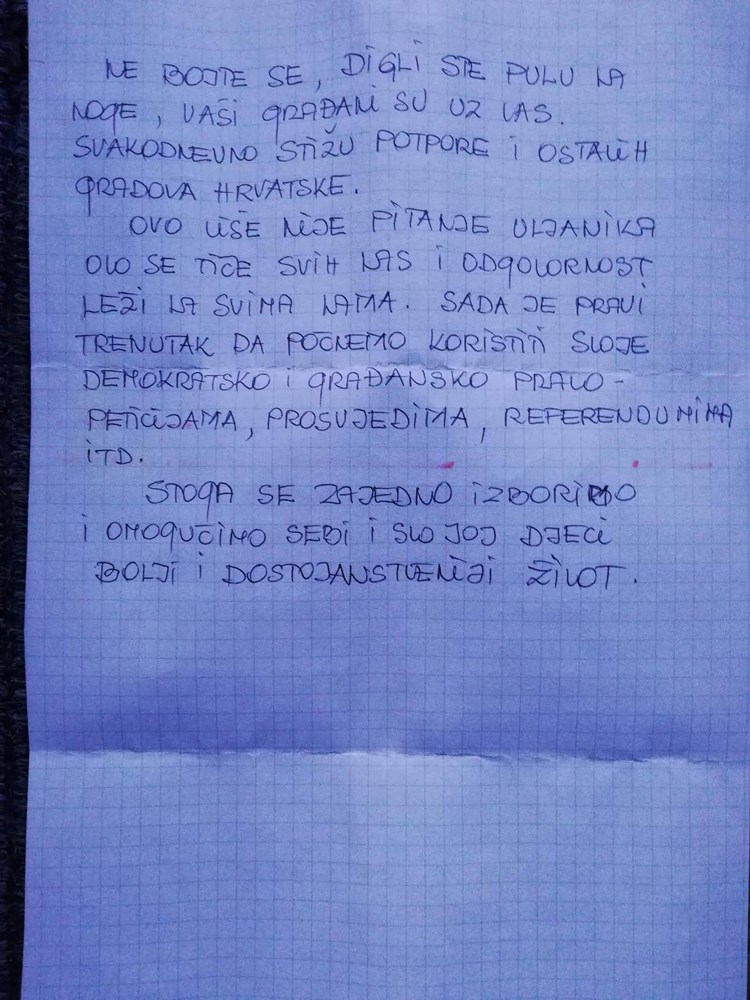 NE BOJTE SE, DIGLI STE PULU NA
NOGE, VAŠI GRAĐANI SU UZ VAS.
SVAKODNEVNO STIŽU POTPORE I OSTALIH
GRADOVA HRVATSKE.
OVO VIŠE NIJE PITANJE ULJANIKA
OVO SE TIČE SVIH NAS I ODGOVORNOST
LEŽI NA SVIMA NAMA. SADA JE PRAVI
TRENUTAK DA POČNEMO KORISTITI SVOJE
DEMOKRATSKO I GRAĐANSKO PRAVO -
PETICIJAMA, PROSVJEDIMA, REFERENDUMIMA
ITD.
STOGA SE ZAJEDNO IZBORIMO
I OMOGUĆIMO SEBI I SVOJOJ DJECI
BOLJI I DOSTOJANSTVENIJI ŽIVOT.